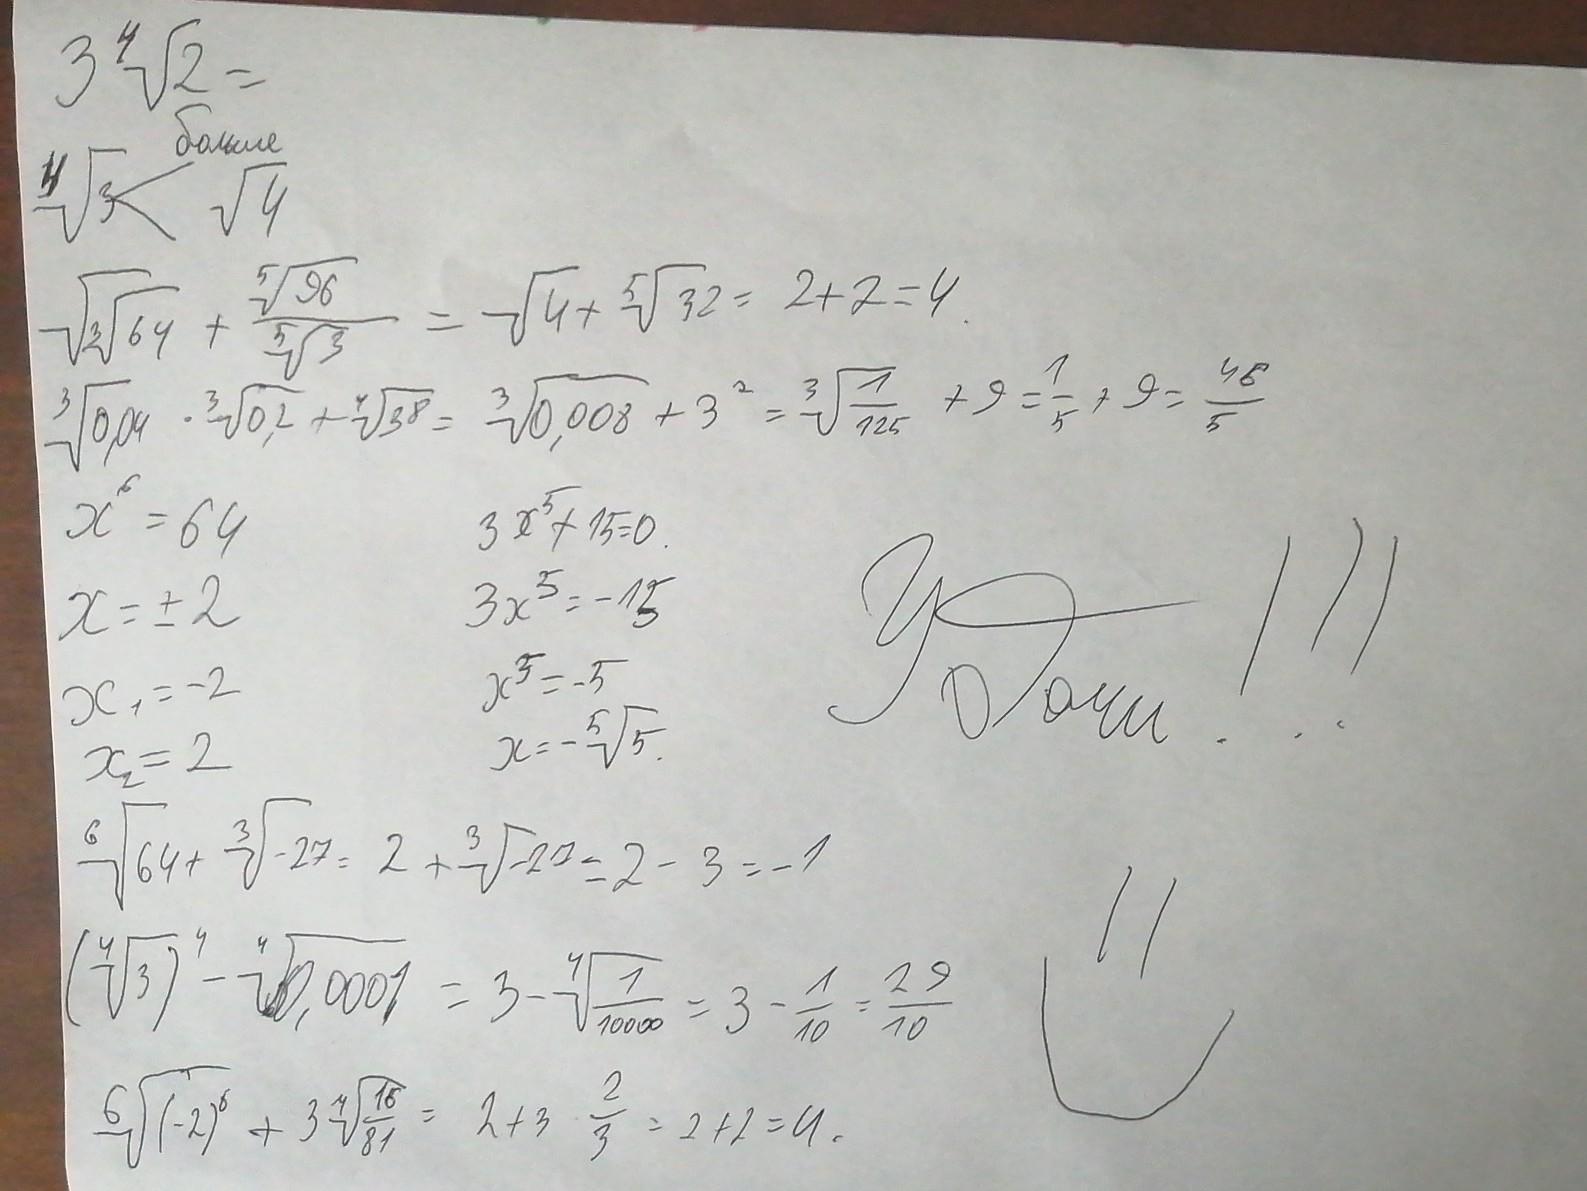 3∜2 =
больше
∜3 < √4
√(∛64) + ⁵√96 / ⁵√3 = √4 + ⁵√32 = 2+2=4.
∛0,04 · ∛0,2 + ∜3⁸ = ∛0,008 + 3² = ∛(1/125) + 9 = 1/5 + 9 = 46/5
x⁶ = 64
x = ± 2
x₁ = -2
x₂ = 2
3x⁵ + 15=0.
3x⁵ = -15
x⁵ = -5
x = -⁵√5.
Удачи!!!
⁶√64 + ∛-27 = 2 + ∛-27 = 2 - 3 = -1
(∜3)⁴ - ∜0,0001 = 3 - ∜(1/10000) = 3 - 1/10 = 29/10
⁶√(-2)⁶ + 3∜(16/81) = 2+3 · 2/3 = 2+2=4.